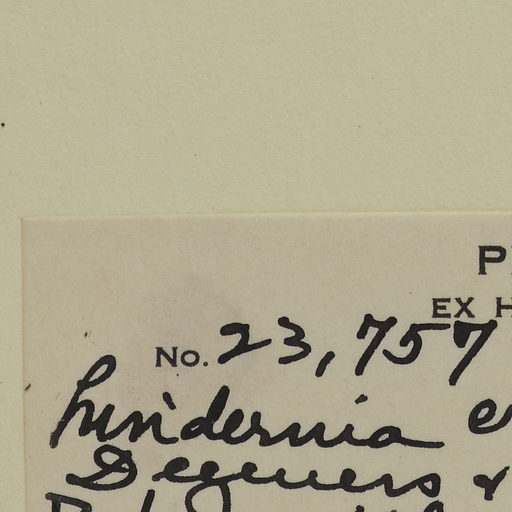 P
EX H
No. 23,757
Lindernia
Degeners &